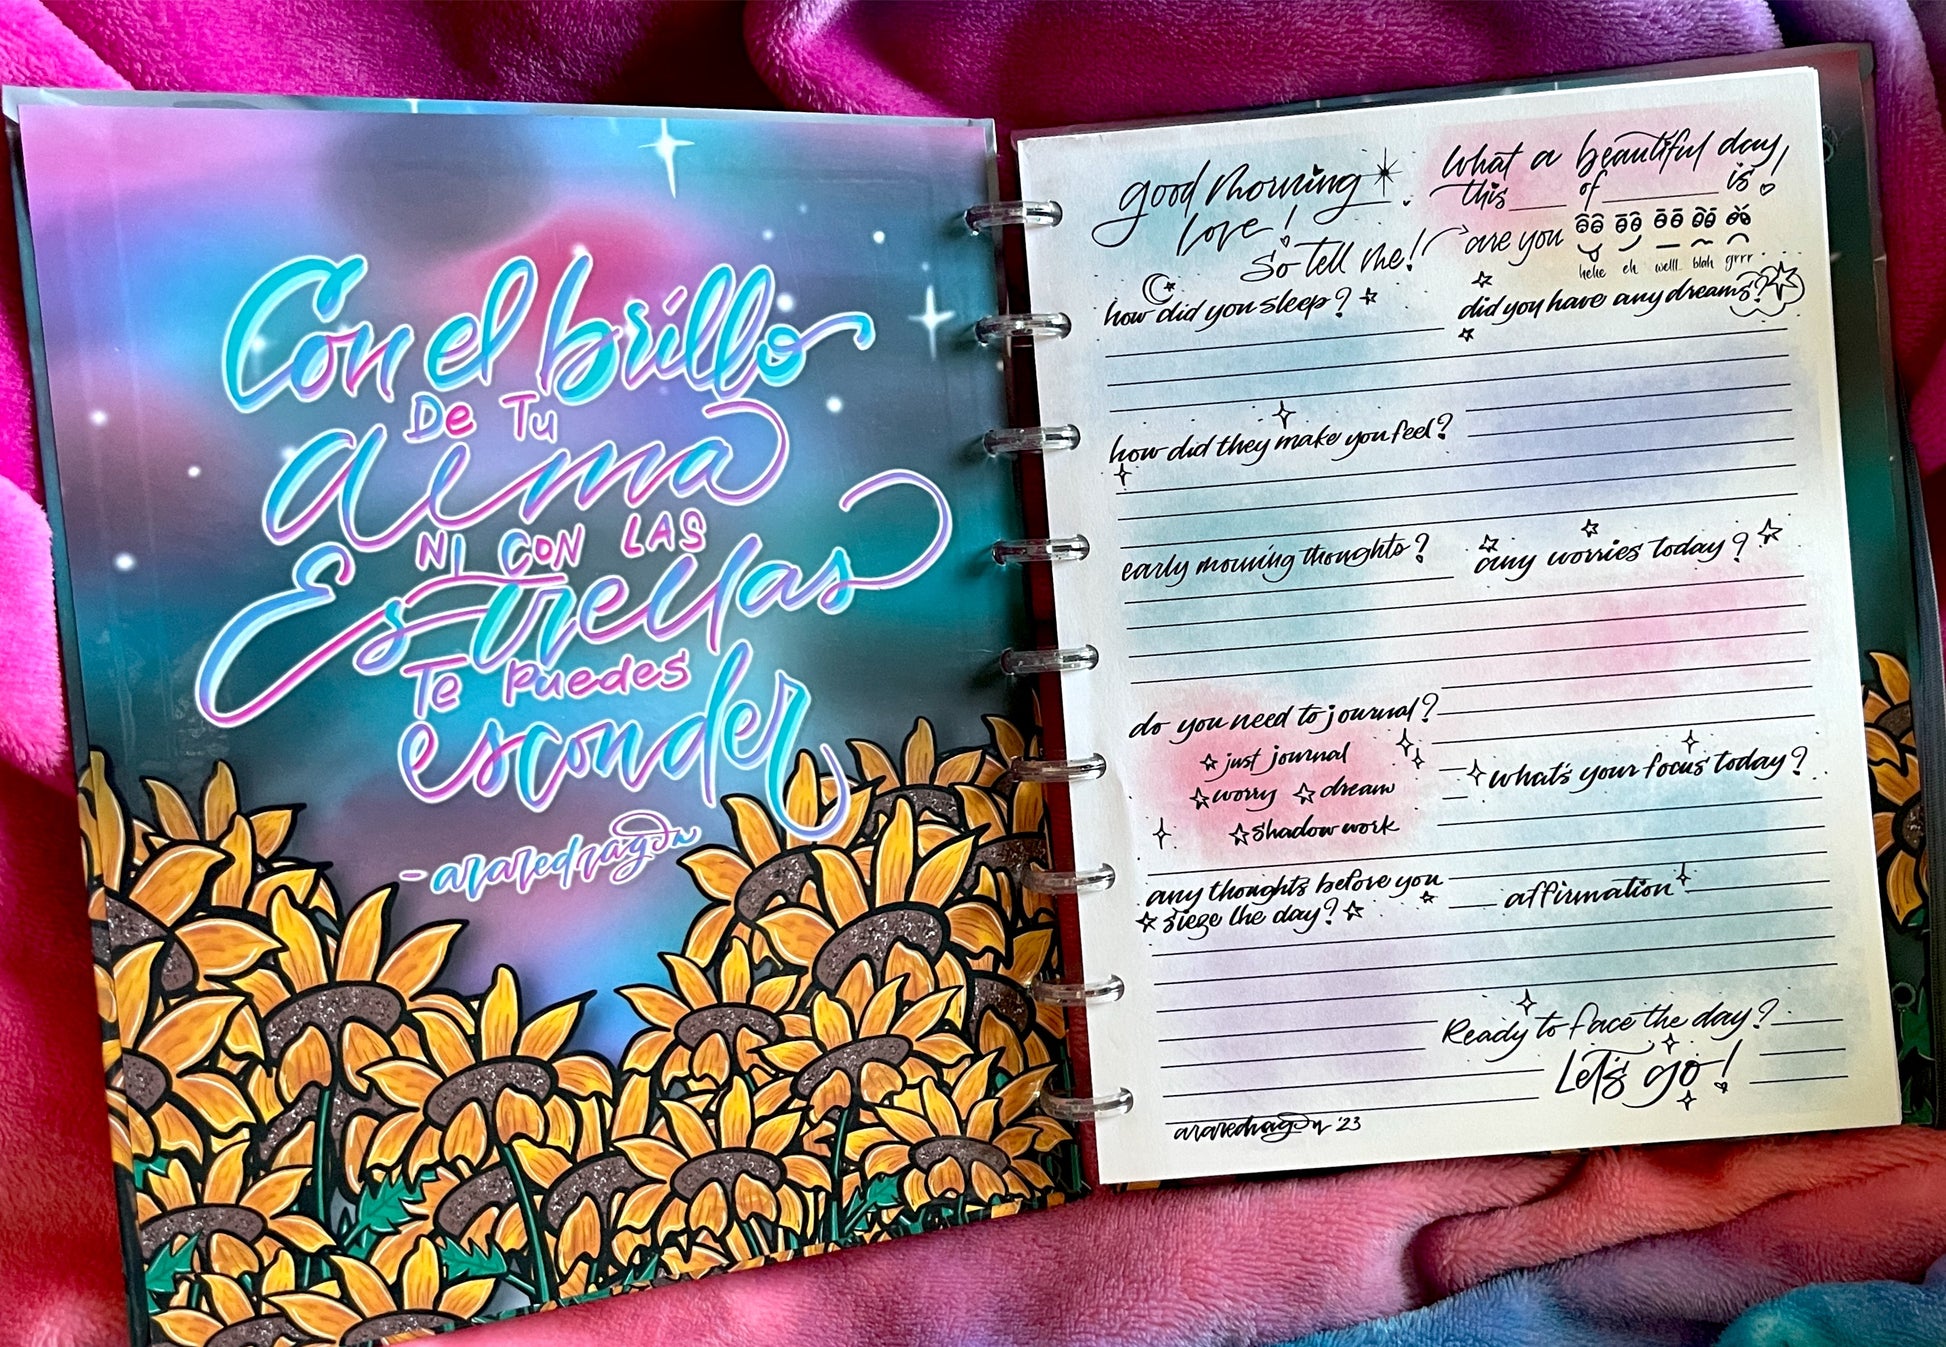 Con el brillo
De Tu
alma
Ni CON LAS
Estrellas
Te Puedes
esconder
- araredragon
good morning
love!
So tell me!
What a beautiful day
this ____ of ________ is!
are you
hehe eh welll blah grrr
how did you sleep?
did you have any dreams?
how did they make you feel?
early morning thoughts?
any worries today?
do you need to journal?
just journal
worry dream
shadow work
what's your focus today?
any thoughts before you
siege the day?
affirmation
Ready to face the day?
Let's go!
araredragon '23